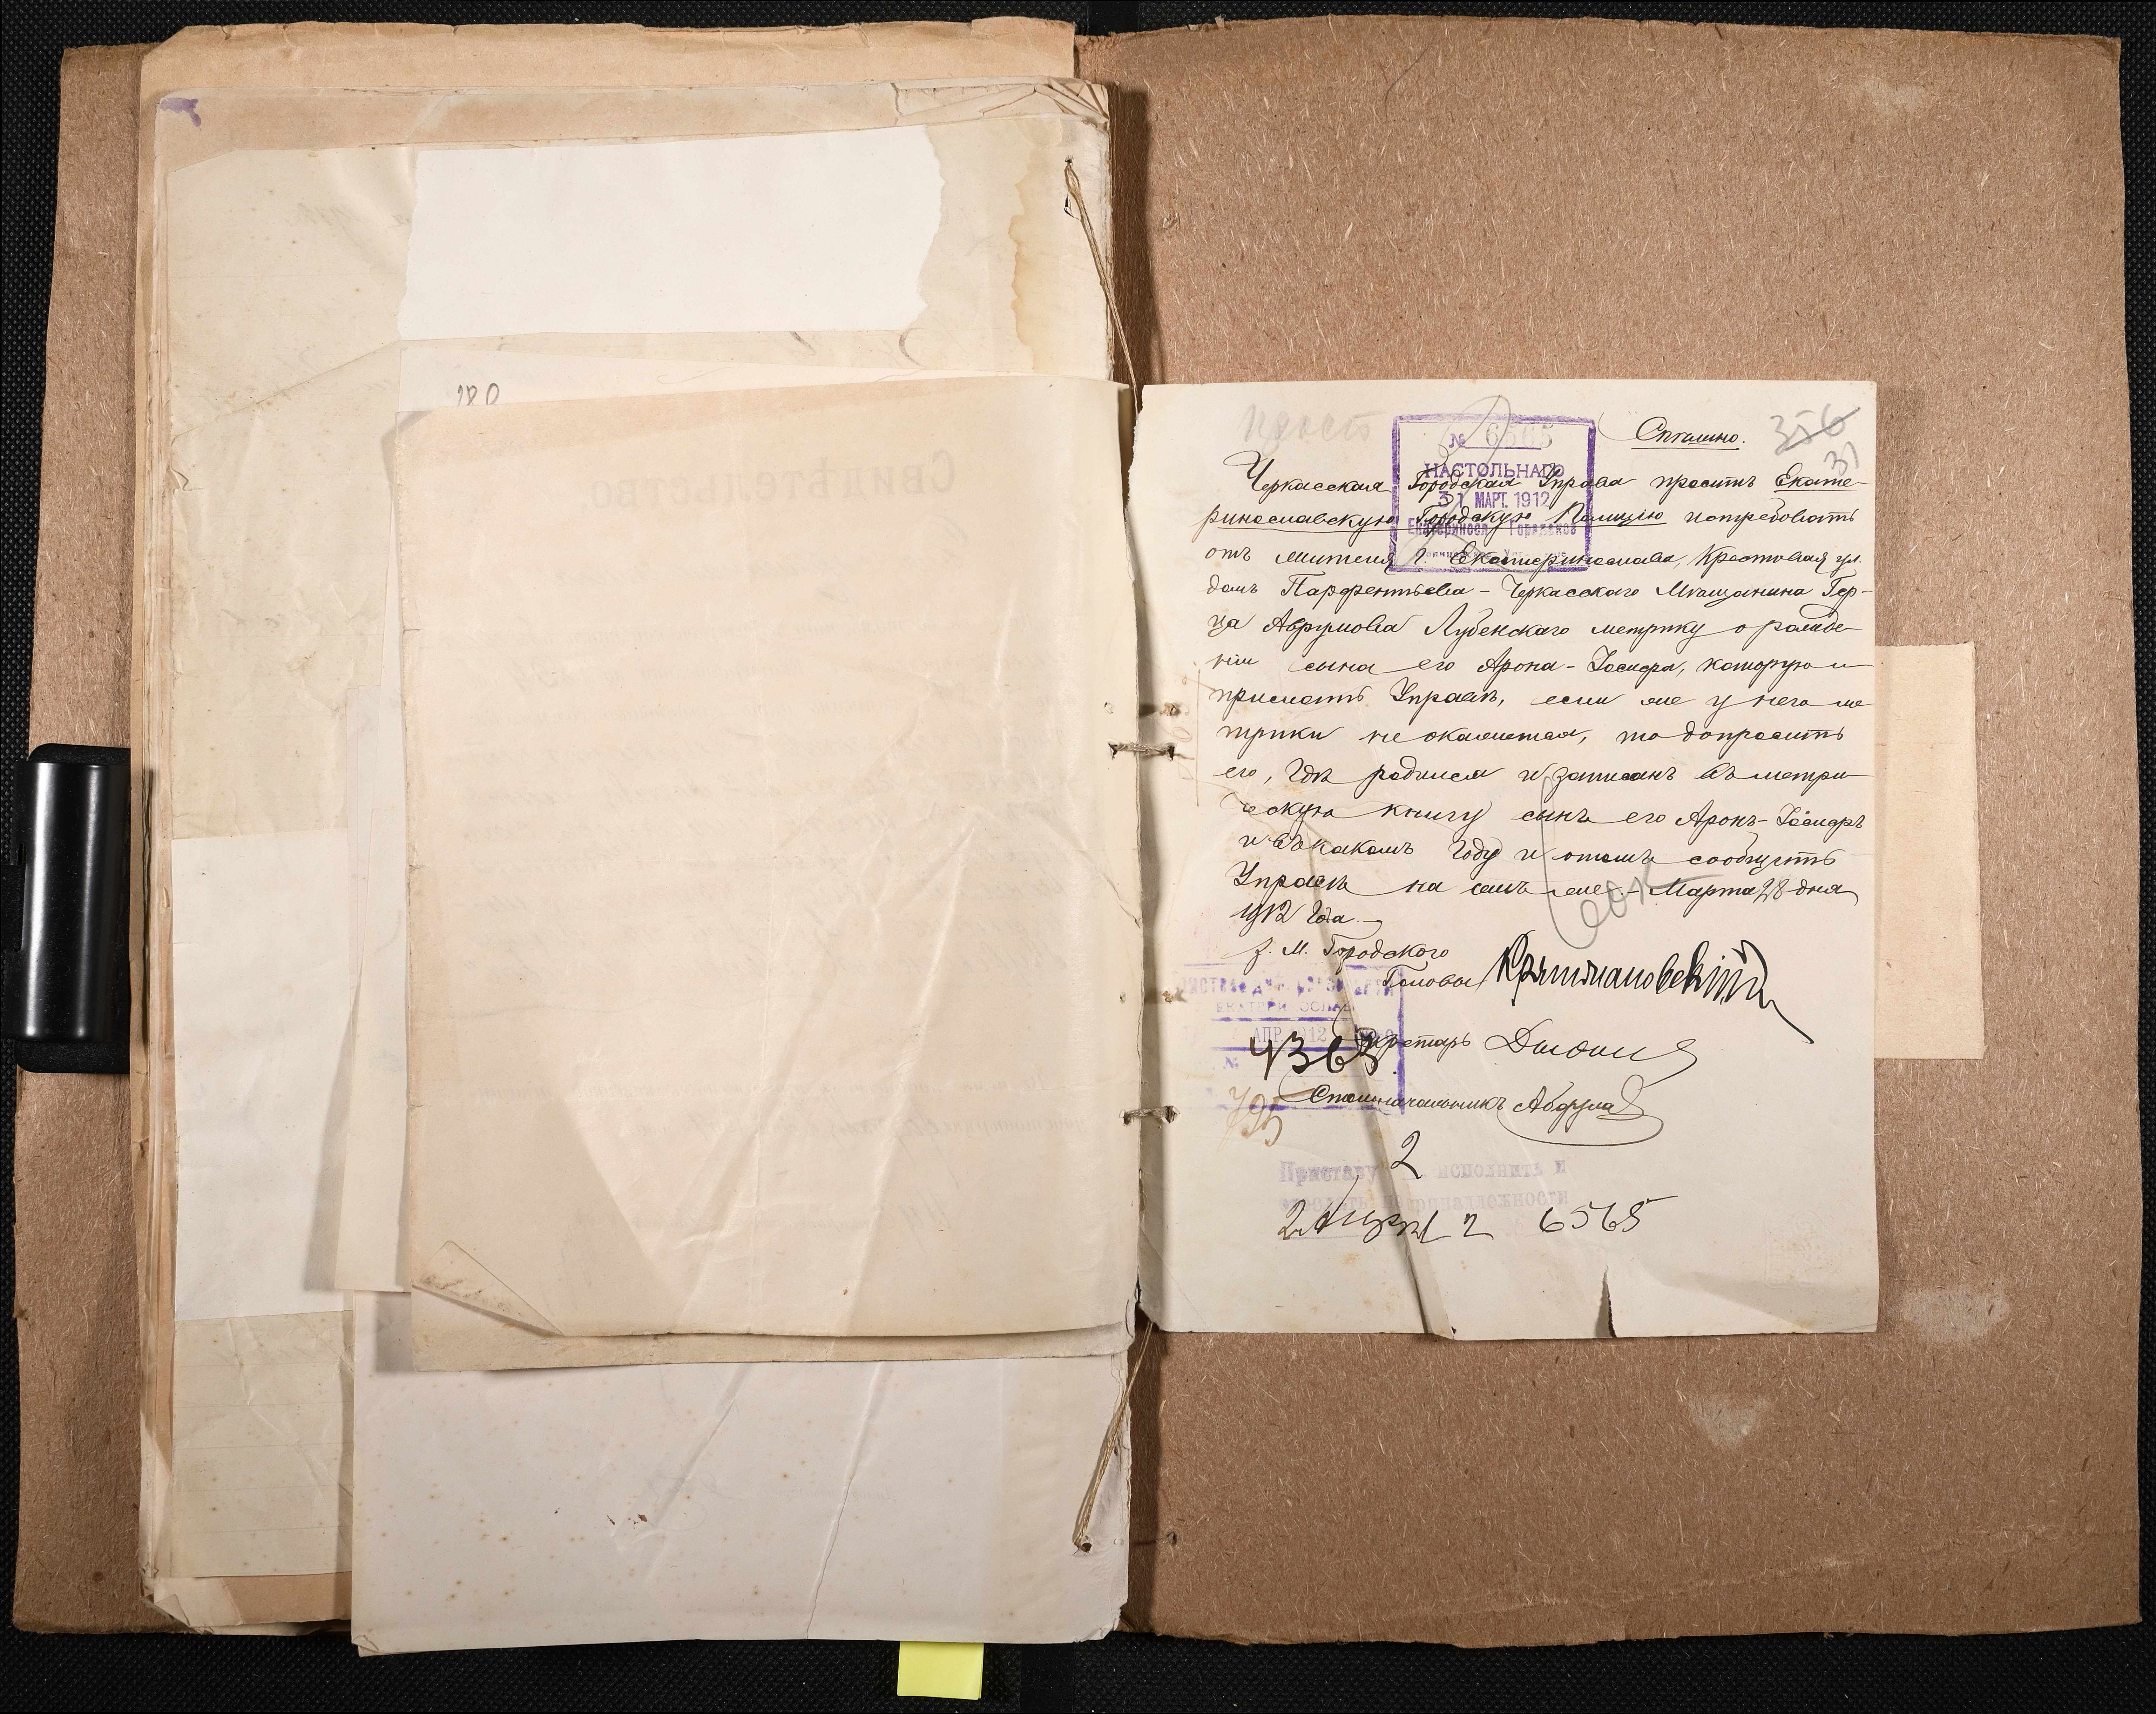 180
356
31
Спѣшно.
№ 6565
НАСТОЛЬНАГО
31 МАРТ. 1912
Екатериносл. Городской
Черкасская Городская Управа проситъ Екате-
ринославскую Городскую Полицію истребовать
отъ жителя г. Екатеринослава, Крестовая ул.
домъ Парфентьева - Черкасскаго Мѣщанина Гер-
ца Аврумова Лубенскаго метрику о рожде-
ніи сына его Арона-Іосифа, которую и
прислать Управѣ, если же у него ме
трики не окажется, то допросить
его, гдѣ родился и записанъ въ метри-
ческую книгу сынъ его Аронъ-Іосифъ
и въ какомъ году и о томъ сообщить
Управѣ на семъ же. - Марта 28 дня
1912 года.
З. М. Городского
Головы
АПР 1912
№ 4363
Секретарь
795
Столоначальникъ
Приставу 2 исполнить и
принадлежности
2 Апр 12 6565